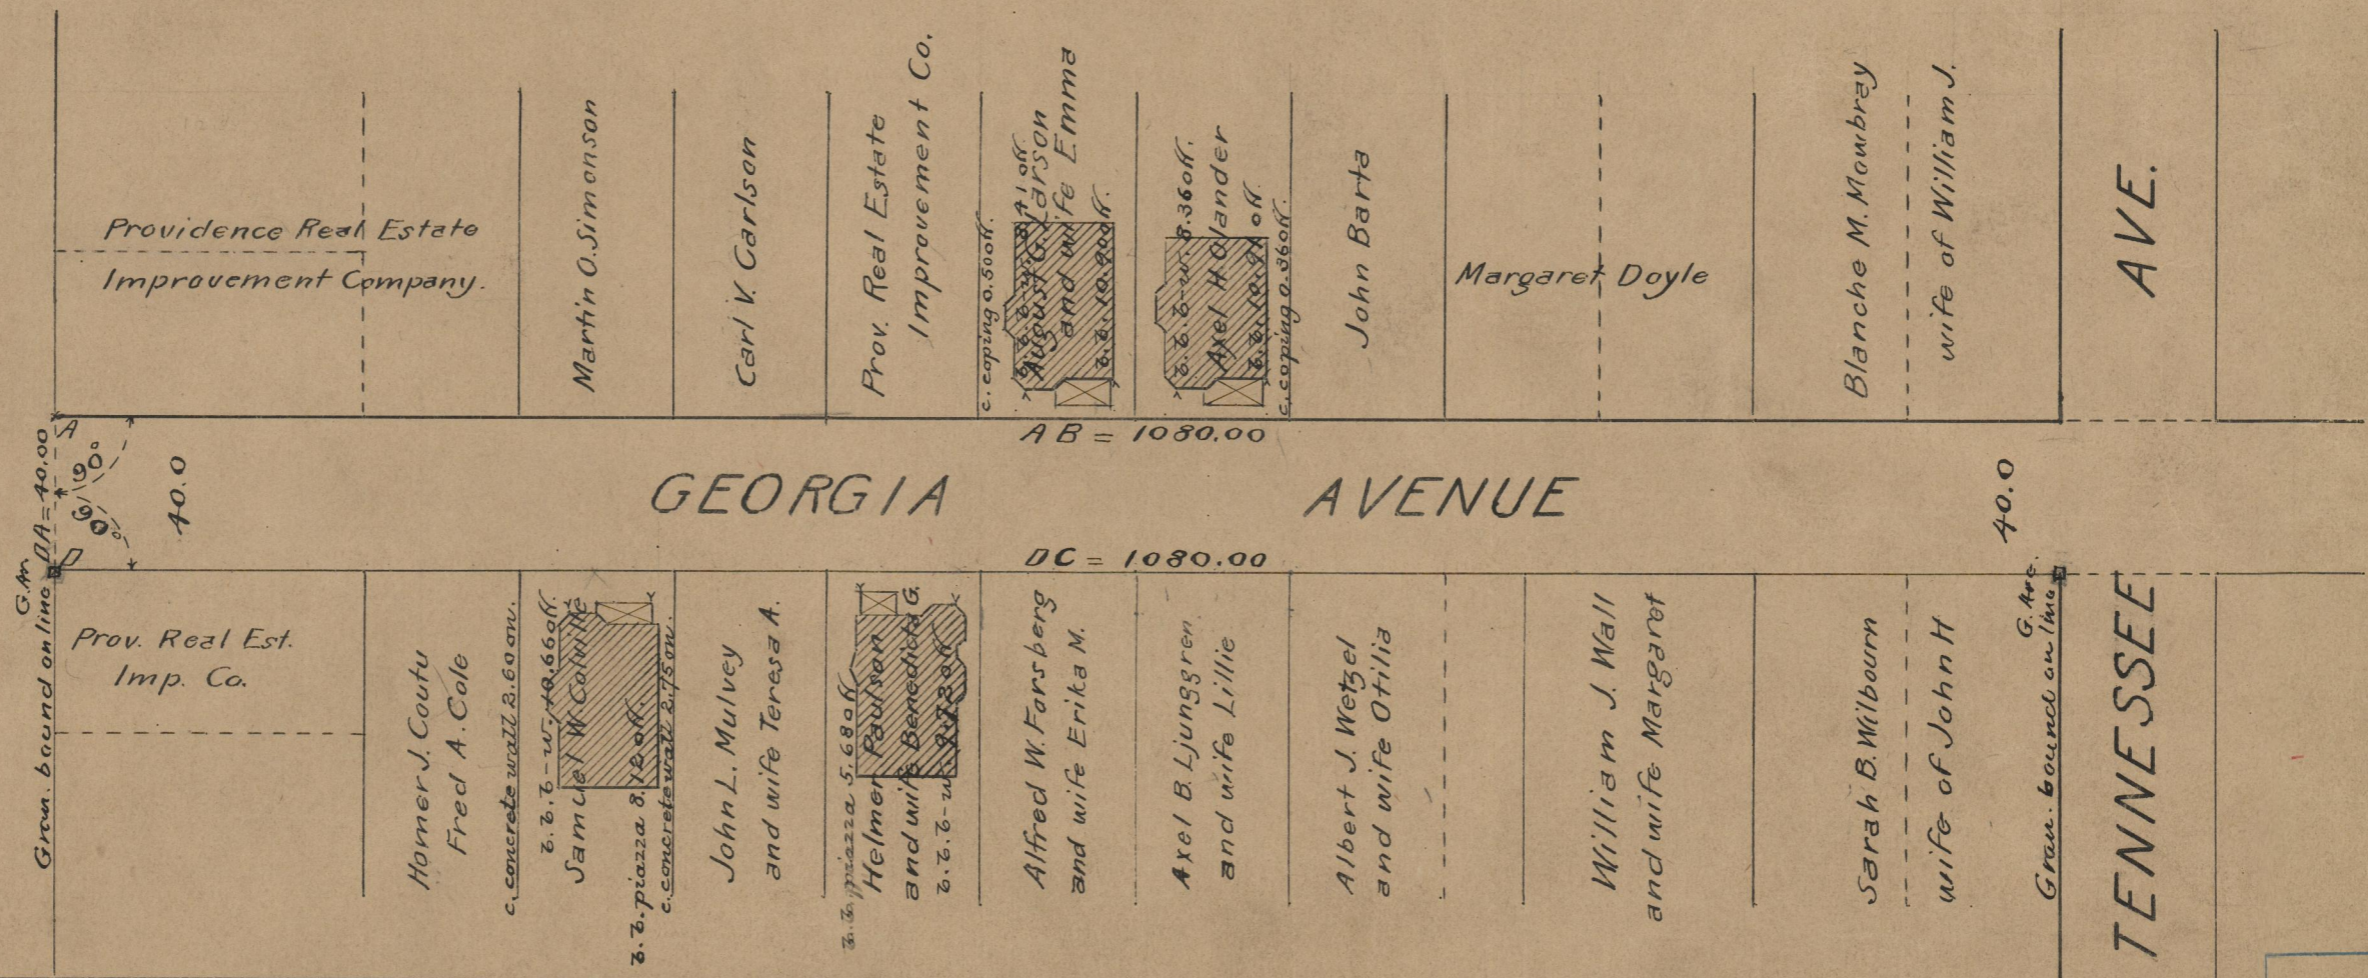 Providence Real Estate
Improvement Company.
Martin O. Simonson
Carl V. Carlson
Prov. Real Estate
Improvement Co.
c. coping 0.500ff.
August G. Larson
and wife Emma
10.900ff.
8.360ff.
Axel H Olander
c. coping 0.360ff.
John Barta
Margaret Doyle
Blanche M. Mowbray
wife of William J.
AVE.
A
DA = 40.00
90°
90°
D
40.0
AB = 1080.00
GEORGIA AVENUE
DC = 1080.00
40.0
G.M.
Gran. bound on line
Prov. Real Est.
Imp. Co.
Homer J. Coutu
Fred A. Cole
c. concrete wall 2.60 on.
10.660ff.
Samuel W Colville
piazza 8.120ff.
c. concrete wall 2.75 on.
John L. Mulvey
and wife Teresa A.
piazza 5.680ff.
Helmer Paulson
and wife Benedicta G.
Alfred W. Forsberg
and wife Erika M.
Axel B. Ljunggren
and wife Lillie
Albert J. Wetzel
and wife Otilia
William J. Wall
and wife Margaret
Sarah B. Wilbourn
wife of John H
G. Ave.
Gran. bound on line
TENNESSEE